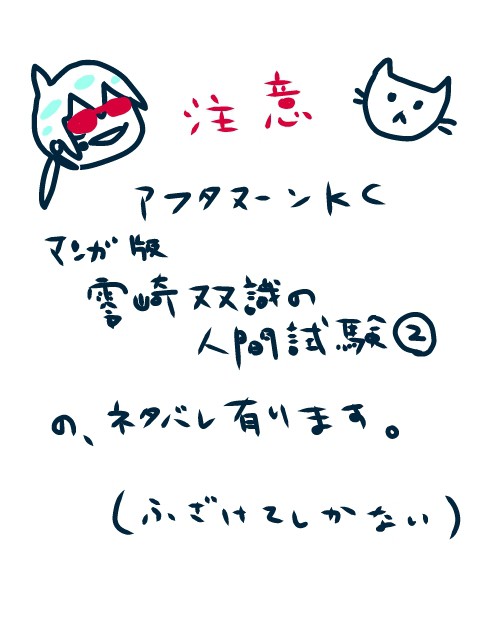 注意
アフタヌーンKC
マンガ版
零崎双識の
人間試験②
の、ネタバレ有ります。
(ふざけてしかない)